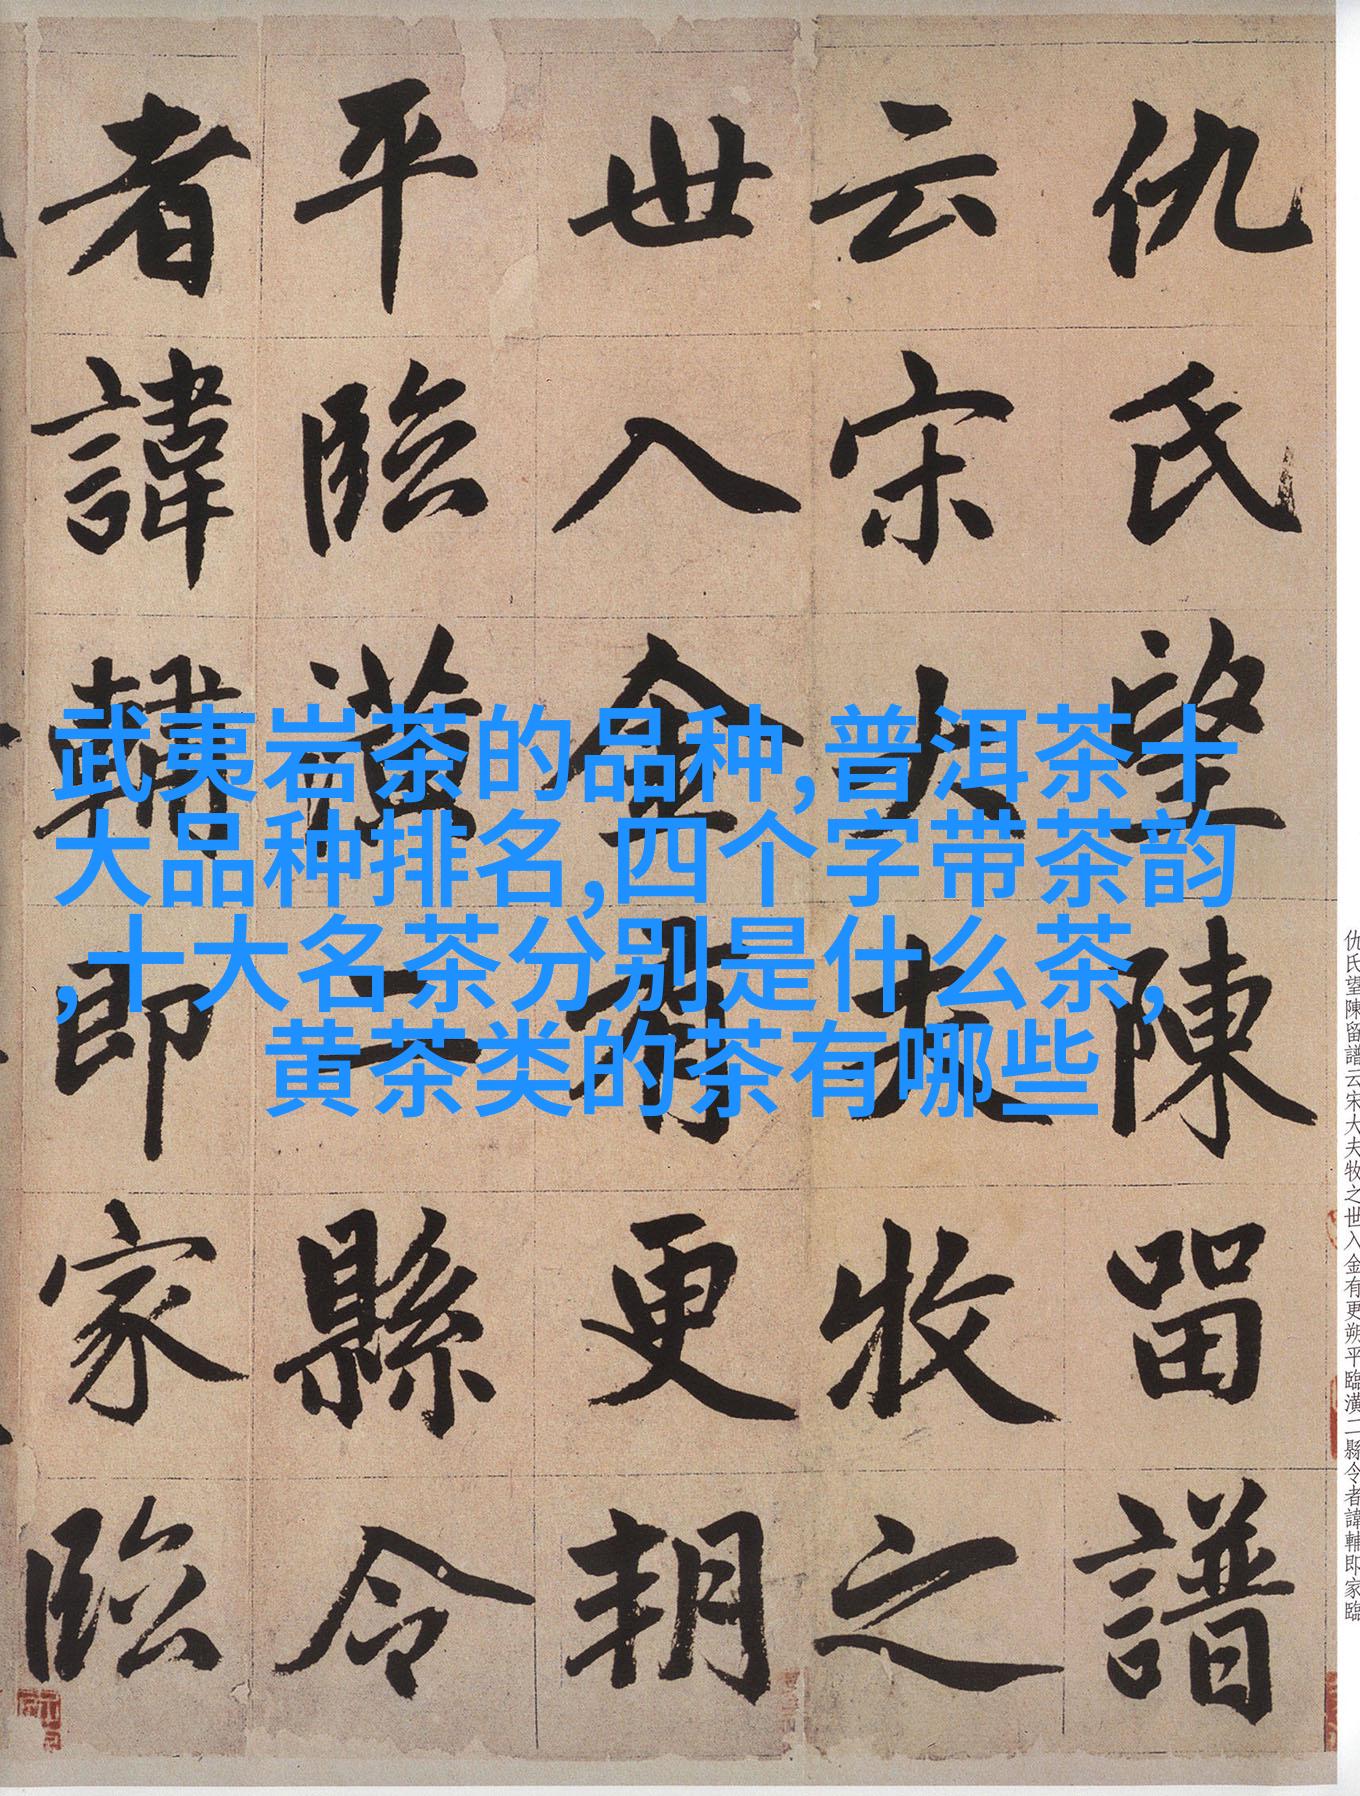 武夷岩茶的品种,普洱茶十
大品种排名,四个字带茶韵
,十大名茶分别是什么茶,
黄茶类的茶有哪些
仇氏望陳留譜
云宋大夫牧之
世入金有更朔
平臨潢二縣令
者諱輔即家臨
仇氏望陳留譜云宋大夫牧之世入金有更朔平臨潢二縣令者諱輔即家臨